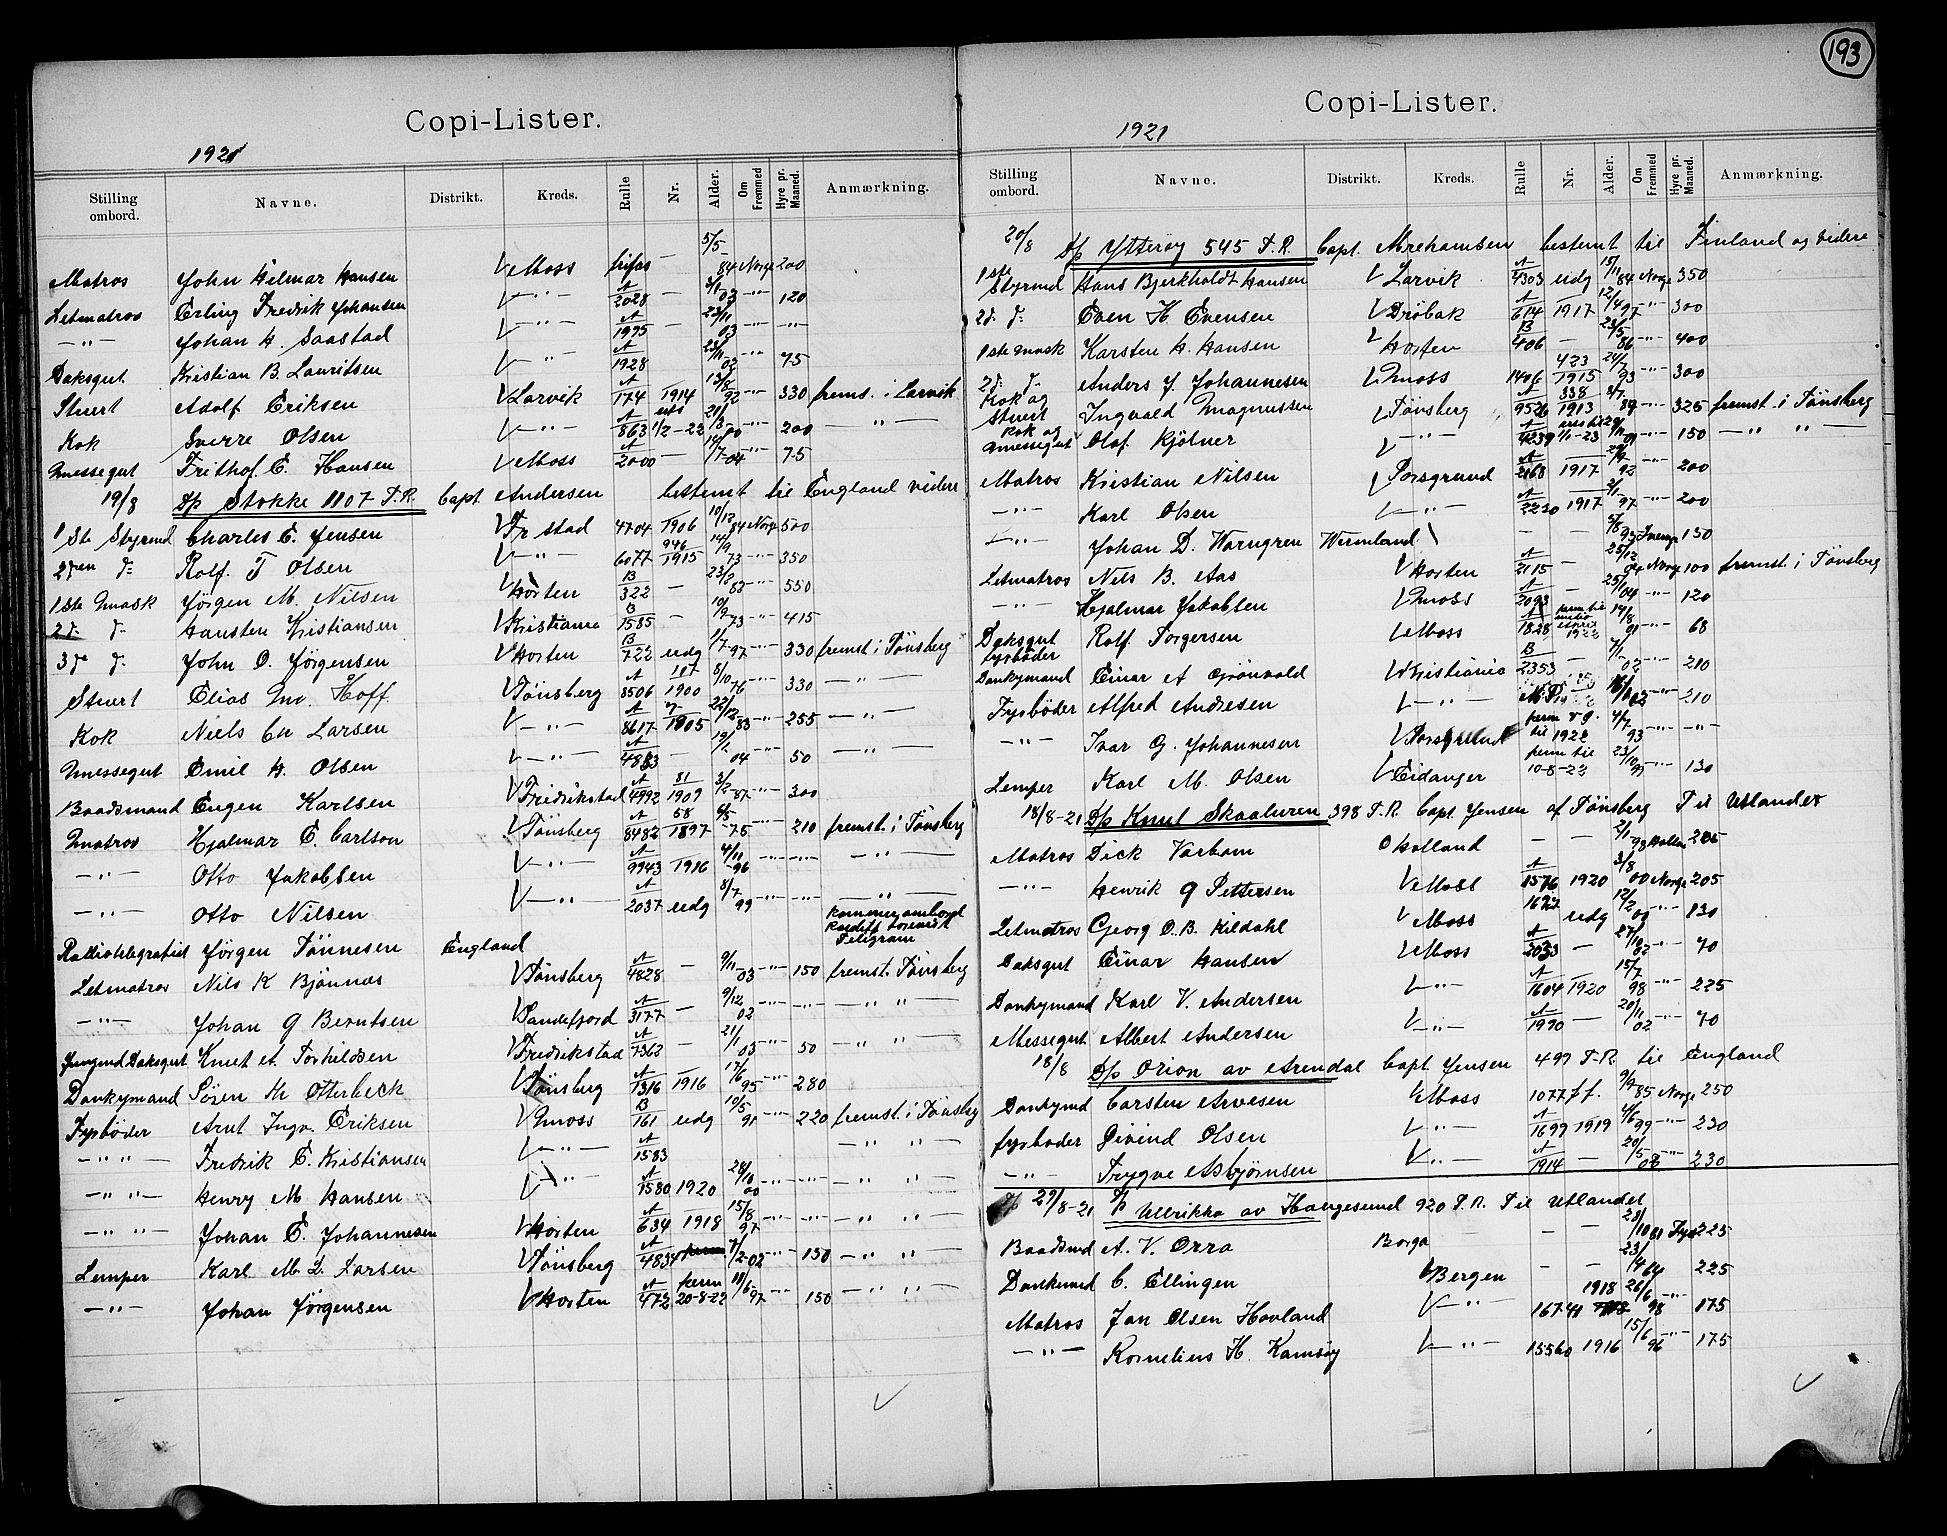 193
Copi-Lister.
1921
Stilling ombord. Navne. Distrikt. Kreds. Rulle Nr. Alder. Om Fremmed Hyre pr. Maaned. Anmærkning.
Matros John Hilmar Hansen V Moss — 5/5 84 Norge 200
Letmatros Erling Fredrik Johansen V —"— A 2028 — 3/1 03 —"— 120
—"— Johan H. Saastad V —"— A 1995 — 23/11 03 —"— —"—
Daksgut Kristian B. Lauritsen V —"— A 1928 23/11 02 —"— 75
Stuert Adolf Eriksen V Larvik A 174 1914 13/8 92 —"— 330 fremst. i Larvik
Kok Sverre Olsen V —"— A 863 1/2-22 21/3 00 —"— 200 —"—
Messegut Frithof. E. Hansen V Moss A 2000 — 14/7 04 —"— 75
19/8 D/p Stokke 1107 T.R. Capt Andersen bestemt til England videre
1ste Styrmd Charles E. Jensen V Fr.stad 4704 1906 10/12 84 Norge 500
2den d= Rolf. T Olsen V —"— 6077 946 1915 14/9 73 —"— 350
1ste Mask Jörgen M. Nilsen V Horten B 322 — 23/2 62 —"— 550
2d= d= Hansten Kristiansen V Kristiania B 1585 — 10/9 73 —"— 415
3de d= John O. Jörgensen V Horten B 722 udg 1/7 97 —"— 330 fremst. i Tönsberg
Stuert Elias Hoff V Tönsberg A 8506 107 1900 8/10 76 —"— 330 —"—
Kok Niels Chr Larsen V —"— A 8617 7 1905 22/12 83 —"— 255 —"—
Messegut Emil H. Olsen V —"— A 4883 19/2 04 —"— 50 —"—
Baadsmand Eugen Karlsen V Fredrikstad A 4992 81 1909 3/2 87 —"— 300
Matros Hjalmar E. Carlson V Tönsberg A 8482 58 1897 6/5 75 —"— 210 fremst. i Tönsberg
—"— Otto Jakobsen V —"— A 9943 1916 4/11 96 —"— —"— —"—
—"— Otto Nilsen V —"— A 2037 udg 8/7 99 —"— —"— —"—
Radiotelegrafist Jörgen Tönnesen England kommer ombord Kardiff Teligram
Letmatros Nils K Bjönnes V Tönsberg A 4828 — 9/11 03 —"— 150 fremst. Tönsberg
—"— Johan G Berntsen V Sandefjord A 3177 — 9/12 02 —"— —"— —"—
Jungmd Daksgut Knut A. Torhildsen V Fredrikstad A 7362 — 21/1 03 —"— 50 —"—
Donkymand Sören Hr Otterbeck V Tönsberg A 1316 1916 17/6 95 —"— 280
Fyrböder Arnt Ingv. Eriksen V Moss B 161 udg 10/5 91 —"— 220 fremst. i Tönsberg
—"— Fredrik E. Kristiansen V —"— A 1583 —"—
—"— Henry M Hansen V —"— A 1580 1920 28/10 00 —"— —"— —"—
—"— Johan E. Johannesen V Horten A 634 1918 15/8 97 —"— —"— —"—
Lemper Karl M. L. Larsen V Tönsberg A 4834 7/2-02 —"— 150 —"—
—"— Johan Jörgensen V Horten A 472 perm 20-8-22 19/6 97 —"— 150 —"—
Copi-Lister.
1921
Stilling ombord. Navne. Distrikt. Kreds. Rulle Nr. Alder. Om Fremmed Hyre pr. Maaned. Anmærkning.
20/8 D/p Ytteröy 545 T.R. Capt. bestemt til Finland og videre
1ste Styrmd Hans Bjerkholdt Hansen V Larvik A 4303 udg 15/11 84 Norge 350
2d. d= Even H. Evensen V Dröbak A 614 1917 12/4 97 —"— 300
1ste Mask Karsten H. Hansen V Horten B 406 — 23/5 86 —"— 400
2d= d= Anders J. Johannesen V Moss 1406 423 1915 24/2 93 —"— 300
Kok og Stuert Ingvald Magnussen V Tönsberg 9526 338 1913 3/7 89 —"— 325 fremst. i Tönsberg
Kok og Messegut Olaf Kjölner V —"— A 4239 1/1-23 01 —"— 150 —"— "—
Matros Kristian Nilsen V Porsgrund A 2168 1917 92 —"— 200
—"— Karl Olsen V —"— A 2220 1917 2/11 97 —"— 200
—"— Johan D. Warngren Wermland — — 5/8 93 Sverige 150
Letmatros Nils B. Aas V Horten A 2015 — 25/12 04 Norge 100 fremst. i Tönsberg
—"— Hjalmar Jakobsen V Moss A 2093 — 25/1 04 —"— 120
Daksgut Rolf Torgersen V Moss 1828 perm til 1922 14/8 01 —"— 68
fyrböder
Donkymand Einar A Grönvold V Kristiania B 2353 — 7/1 02 —"— 210
Fyrböder Alfred Andresen V —"— —"— 210
—"— Ivar G. Johannesen V Porsgrund perm til 1922 4/7 93 —"— —"—
Lemper Karl M. Olsen V Eidanger perm til 10-8-22 23/10 99 —"— 130
18/8-21 D/p Knut Skaaluren 398 T.R. Capt. Jensen af Tönsberg Til Utlandet
Matros Dick Varham Holland — — 2/1 98 Hollan 205
—"— Henrik G Pettersen V Moss A 1576 1920 3/8 00 Norge 205
Letmatros Georg O.B. Kildahl V Moss 1677 udg 12/2 00 —"— 130
Daksgut Einar Hansen V Moss A 2033 — 27/10 02 —"— 70
Donkymand Karl V. Andersen V —"— A 1604 1920 15/7 98 —"— 225
Messegut Albert Andersen V —"— A 1990 — 20/11 02 —"— 70
18/8 D/p Orion av Arendal Capt Jensen 497 T.R. til England
Donkymd Carsten Arvesen V Moss 1077 f.f. 9/9 85 Norge 250
fyrböder Öivind Olsen V —"— A 1699 1919 4/6 99 —"— 230
—"— Trygve Asbjörnsen V —"— A 1914 — 20/5 02 —"— 230
29/8-21 D/p Ullrikka av Haugesund 920 T.R. Til Utlandet
Baadsmd A. V. Orro Borga — — 28/10 81 225
Donkemd C. Ellingen V Bergen — — 23/4 64 225
Matros Jan Olsen Hovland V —"— 16741 1918 26/6 98 —"— 175
—"— Kornelius H. Kamsöy V —"— 15560 1916 15/6 96 —"— 175